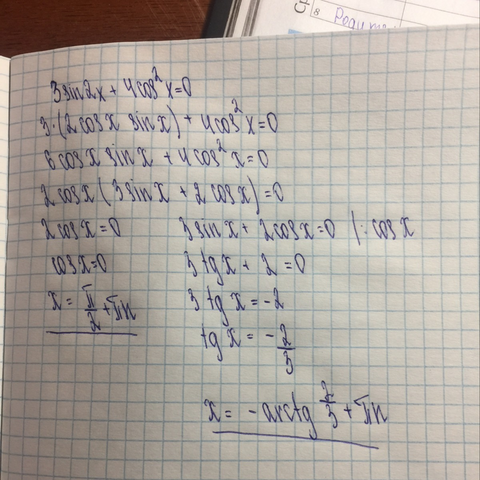 8
3 sin2x + 4cos²x=0
3·(2cosx sinx) + 4cos²x=0
6cosx sinx + 4cos²x=0
2cosx(3sinx + 2cosx)=0
2cosx=0 3sinx + 2cosx=0 |:cosx
cosx=0 3tgx + 2 =0
x= π/2 +πn 3tgx=-2
tgx= -2/3
x= -arctg 2/3 +πn